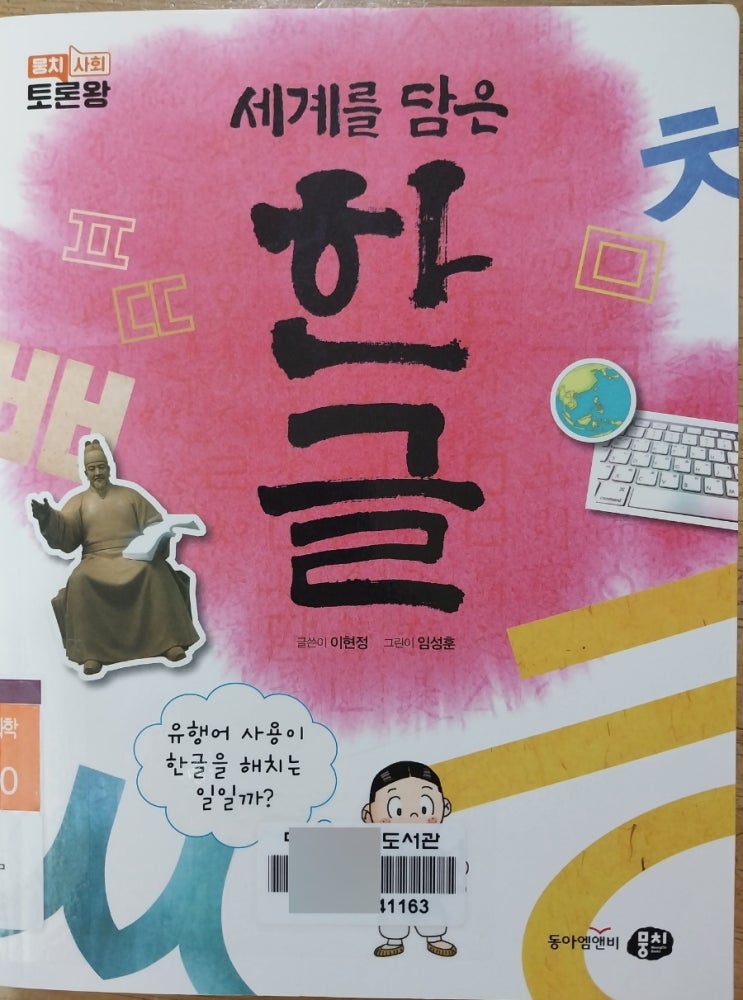 뭉치 사회
토론왕
세계를 담은
한
글
ㅊ
ㅍ
ㄸ
ㅁ
ㅃ
글쓴이 이현정 그린이 임성훈
유행어 사용이
한글을 해치는
일일까?
학
0
도서관
41163
동아엠앤비 뭉치